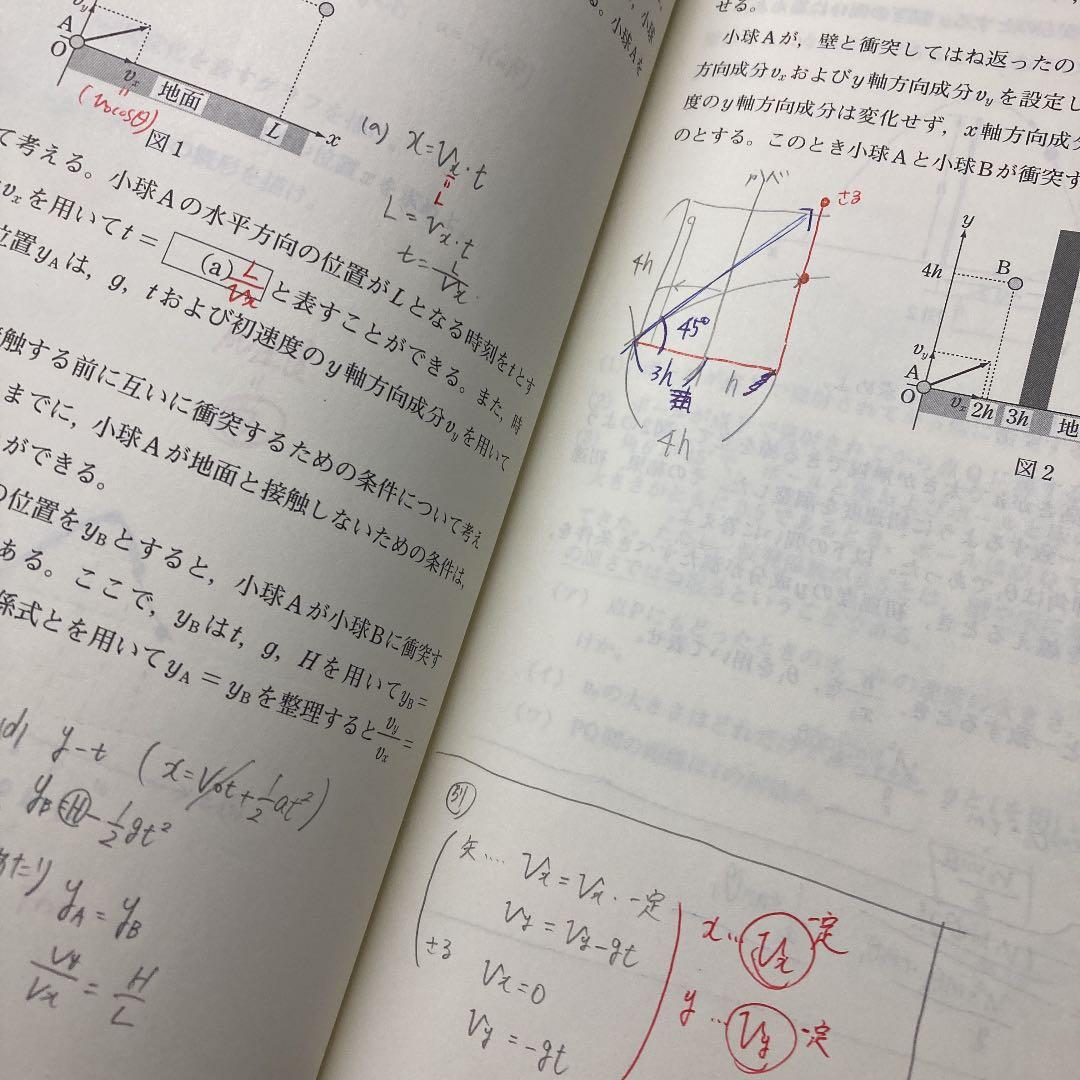 小球
。小球Aを
A
O
vx
地面
L
x
(v₀cosθ)
図1
(a) x=Vx・t
L
L=Vx・t
t=L/Vx
て考える。小球Aの水平方向の位置がLとなる時刻をtとす
vxを用いてt= (a) L/Vx と表すことができる。また,時
位置yAは,g,tおよび初速度のy軸方向成分vyを用いて
触する前に互いに衝突するための条件について考え
までに,小球Aが地面と接触しないための条件は,
ができる。
の位置をyBとすると,小球Aが小球Bに衝突す
ある。ここで,yBはt,g,Hを用いてyB=
係式とを用いてyA=yBを整理するとvy/vx=
y-t (x=V₀t+1/2at²)
yB=H-1/2gt²
yA=yB
Vy/Vx=H/L
せる。
小球Aが,壁と衝突してはね返ったの
方向成分vxおよびy軸方向成分vyを設定し
度のy軸方向成分は変化せず,x軸方向成分
のとする。このとき小球Aと小球Bが衝突す
カベ
さる
4h
45°
3h
h
4h
y
4h
B
vy
A
O
vx
2h
3h
地
図2
別
矢‥‥ Vx=Vx・一定
Vy=Vy-gt
さる
Vx=0
Vy=-gt
x‥Vx 一定
y‥Vy 一定